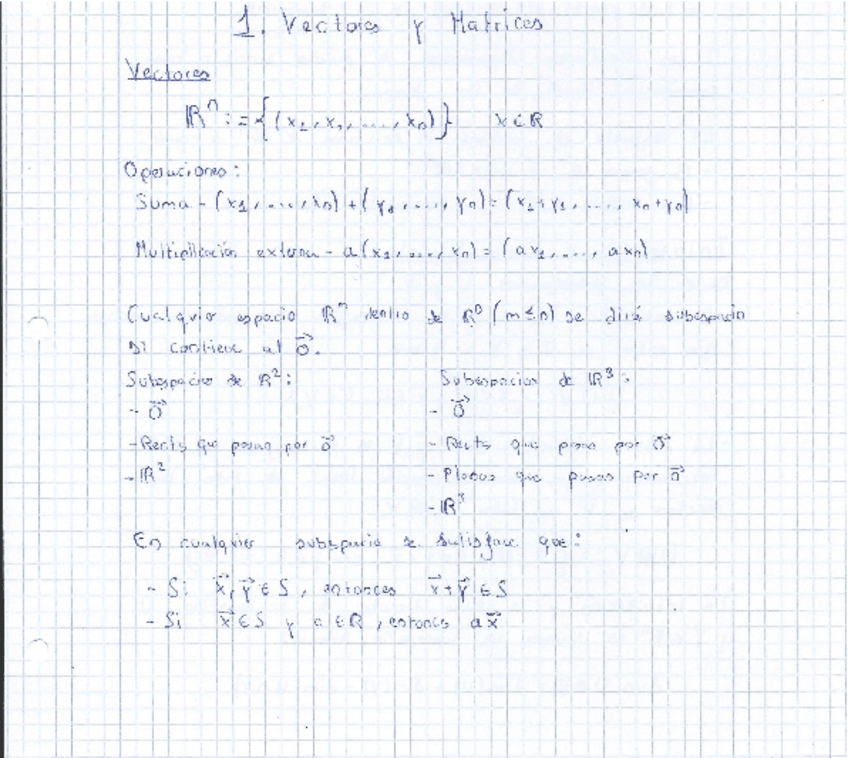 1. Vectores y Matrices
Vectores
ℝⁿ := {(x₁, x₂, ...., xₙ)} x∈ℝ
Operaciones:
Suma - (x₁, ..., xₙ) + (y₁, ..., yₙ) = (x₁+y₁, ..., xₙ+yₙ)
Multiplicación externa - a(x₁, ..., xₙ) = (ax₁, ..., axₙ)
Cualquier espacio ℝᵐ dentro de ℝⁿ (m≤n) se dirá subespacio
si contiene al 0⃗.
Subespacios de ℝ²:
- 0⃗
- Rects que pasan por 0⃗
- ℝ²
Subespacios de ℝ³:
- 0⃗
- Rects que pasan por 0⃗
- Planos que pasan por 0⃗
- ℝ³
En cualquier subespacio se satisface que:
- Si x⃗, y⃗ ∈ S, entonces x⃗+y⃗ ∈ S
- Si x⃗ ∈ S y a ∈ ℝ, entonces ax⃗